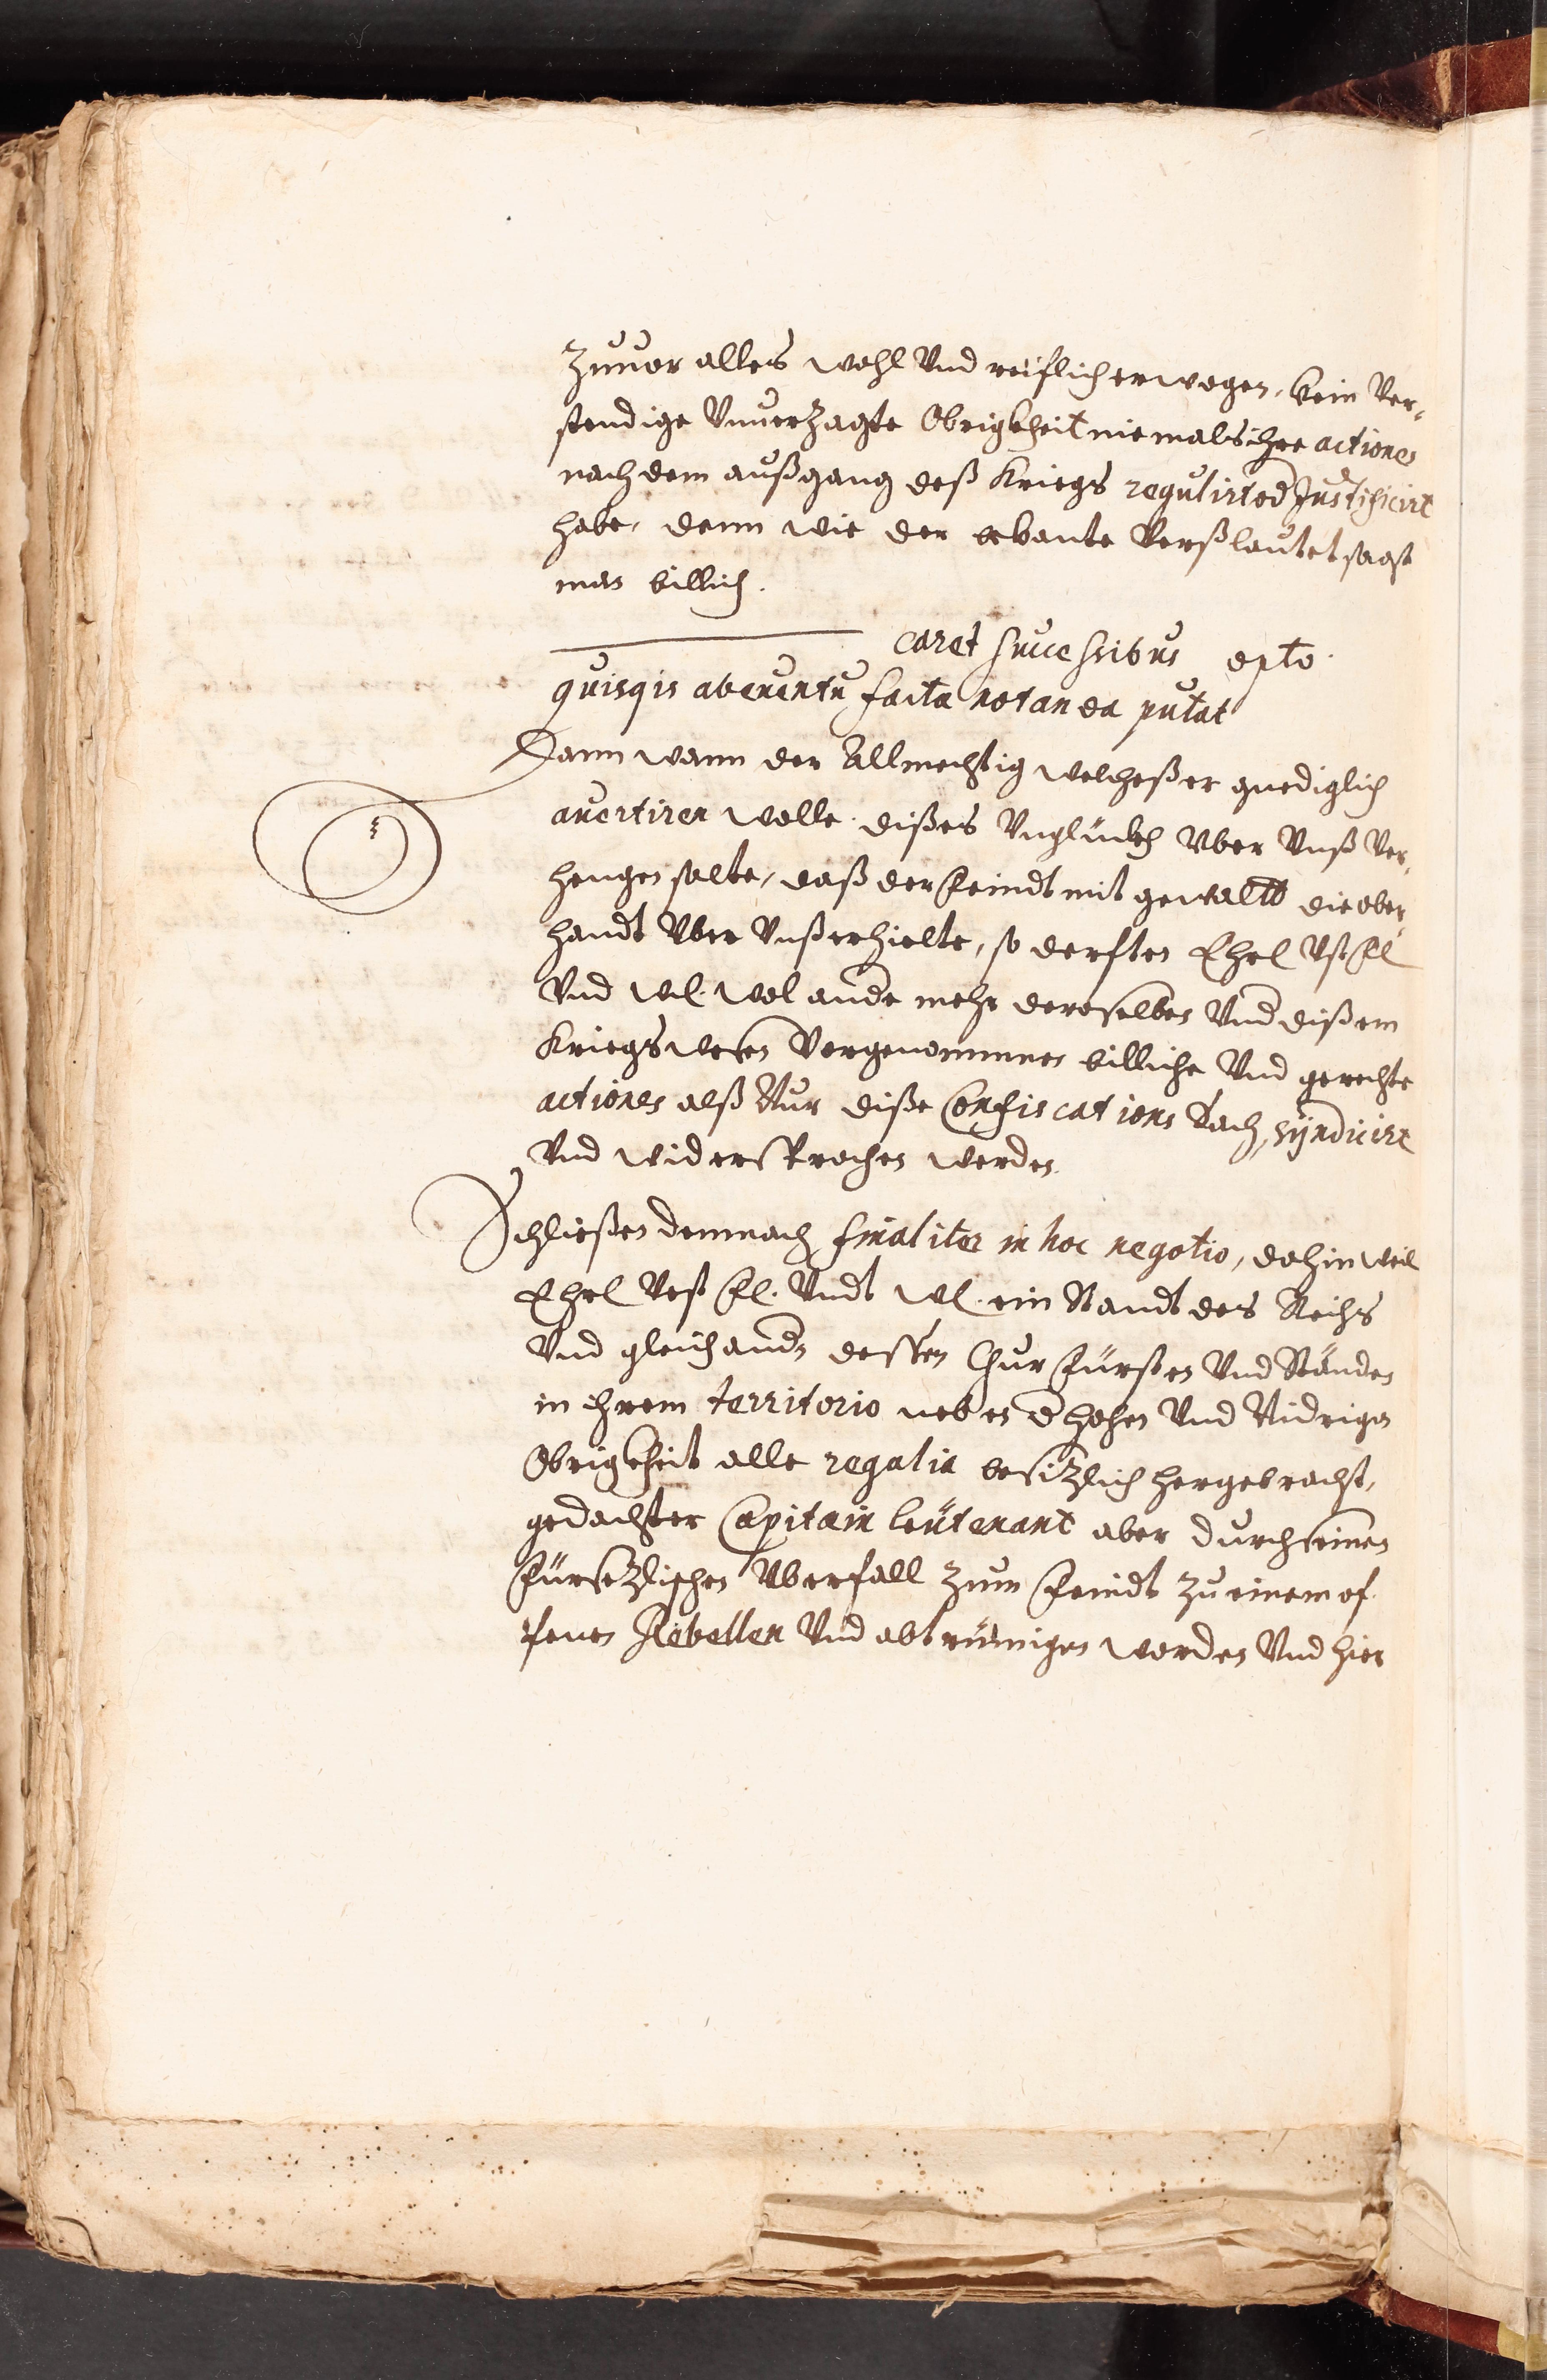 Zuuor alles wohl Vnd reiflich erwogen, kein Ver¬
stendige Vnuerzagte Obrigkheit niemals ihre actiones
nach dem außgang deß Kriegs regulirt od Justificirt
habe, denn wie der bekante Verß lautet sagt
man billich.
caret successibus opto
quisqis ab euentu facta notanda putat
Dann wann der Allmechtig welches er gnediglich
auertiren wolle dißes Vnglückh Vber Vnß Ver¬
hengen solte, daß der feindt mit gewaltt die ober¬
handt Vber Vnß erhielte, so derften Ehrl Vst fl
Vnd wl. wol ande mehr deroselben Vnd dißem
Kriegswesen Vorgenommen billiche Vnd gerechte
actiones alß Nur diße Confiscations sach, syndicirt
Vnd widersprochen werden.
Schließen demnach finaliter in hoc negotio, dahin weil
Ehrl Vest fl. Vndt wl. ein Standt des Reichs
Vnd gleich andn dessen Chur fürsten Vnd Ständen
in ihrem territorio neben d hohen Vnd Nidrigen
Obrigkheit alle regalia besizlich hergebracht,
gedachter Capitain leütenant aber durch seinen
fürsezlichen Vberfall zum feindt zu einem of¬
fenen Rebellen Vnd abtrünnigen worden Vnd hier